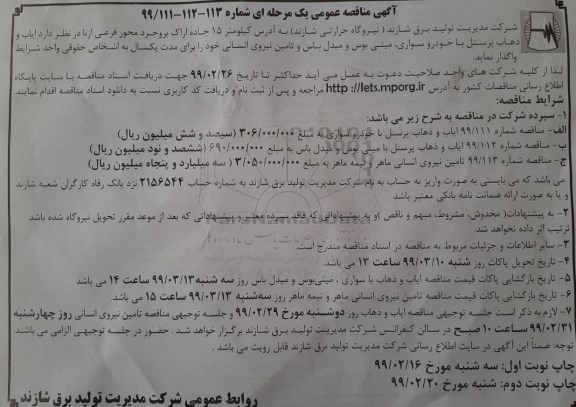 آگهی مناقصه عمومی یک مرحله ای شماره ۱۱۳-۱۱۲-۹۹/۱۱۱
شرکت مدیریت تولید برق شازند ( نیروگاه حرارتی شازند) به آدرس کیلومتر ۱۵ جاده اراک بروجرد محور فرعی ازنا در نظر دارد ایاب و
ذهاب پرسنل با خودرو سواری، مینی بوس و میدل باس و تامین نیروی انسانی خود را برای مدت یکسال به اشخاص حقوقی واجد شرایط
واگذار نماید.
لذا از کلیه شرکت های واجد صلاحیت دعوت به عمل می آید حداکثر تا تاریخ ۹۹/۰۲/۲۶ جهت دریافت اسناد مناقصه با سایت پایگاه
اطلاع رسانی مناقصات کشور به آدرس http://iets.mporg.ir مراجعه و پس از ثبت نام و دریافت کد کاربری نسبت به دانلود اسناد مناقصه اقدام نمایند.
شرایط مناقصه:
۱- سپرده شرکت در مناقصه به شرح زیر می باشد:
الف- مناقصه شماره ۹۹/۱۱۱ ایاب و ذهاب پرسنل با خودرو سواری به مبلغ ۳۰۶/۰۰۰/۰۰۰ (سیصد و شش میلیون ریال)
ب- مناقصه شماره ۹۹/۱۱۲ ایاب و ذهاب پرسنل با مینی بوس و میدل باس به مبلغ ۶۹۰/۰۰۰/۰۰۰ (ششصد و نود میلیون ریال)
ج- مناقصه شماره ۹۹/۱۱۳ تامین نیروی انسانی ماهر و نیمه ماهر به مبلغ ۳/۰۵۰/۰۰۰/۰۰۰ ( سه میلیارد و پنجاه میلیون ریال)
می باشد که می بایستی به صورت واریز به حساب به نام شرکت مدیریت تولید برق شازند به شماره حساب ۲۱۵۶۵۴۴ نزد بانک رفاه کارگران شعبه شازند
و یا به صورت ارائه ضمانت نامه بانکی معتبر باشد
۲- به پیشنهادات( مخدوش، مشروط، مبهم و ناقص او به پیشنهاداتی که فاقد سپرده معتبر و پیشنهاداتی که بعد از موعد مقرر تحویل نیروگاه شده باشد
ترتیب اثر داده نخواهد شد.
۳- سایر اطلاعات و جزئیات مربوط به مناقصه در اسناد مناقصه مندرج است.
۴- تاریخ تحویل پاکات روز شنبه ۹۹/۰۳/۱۰ ساعت ۱۳ می باشد.
۵- تاریخ بازگشایی پاکات قیمت مناقصه ایاب و ذهاب با سواری ، مینی‌بوس و میدل باس روز سه شنبه ۹۹/۰۳/۱۳ ساعت ۱۴ می باشد
۶- تاریخ بازگشایی پاکات قیمت مناقصه تامین نیروی انسانی ماهر و نیمه ماهر روز سه‌شنبه ۹۹/۰۳/۱۳ ساعت ۱۵ می باشد.
۷- لازم به ذکر است جلسه توجیهی مناقصه ایاب و ذهاب روز دوشنبه مورخ ۹۹/۰۲/۲۹ و جلسه توجیهی مناقصه تامین نیروی انسانی روز چهارشنبه
۹۹/۰۲/۳۱ ساعت ۱۰ صبح در سالن کنفرانس شرکت مدیریت تولید برق شازند برگزار خواهد شد . حضور در جلسه توجیهی الزامی می باشد.
توجه ضمناً این آگهی در سایت اطلاع رسانی شرکت مدیریت تولید برق شازند قابل رویت می باشد .
چاپ نوبت اول: سه شنبه مورخ ۹۹/۰۲/۱۶
چاپ نوبت دوم: شنبه مورخ ۹۹/۰۲/۲۰
روابط عمومی شرکت مدیریت تولید برق شازند